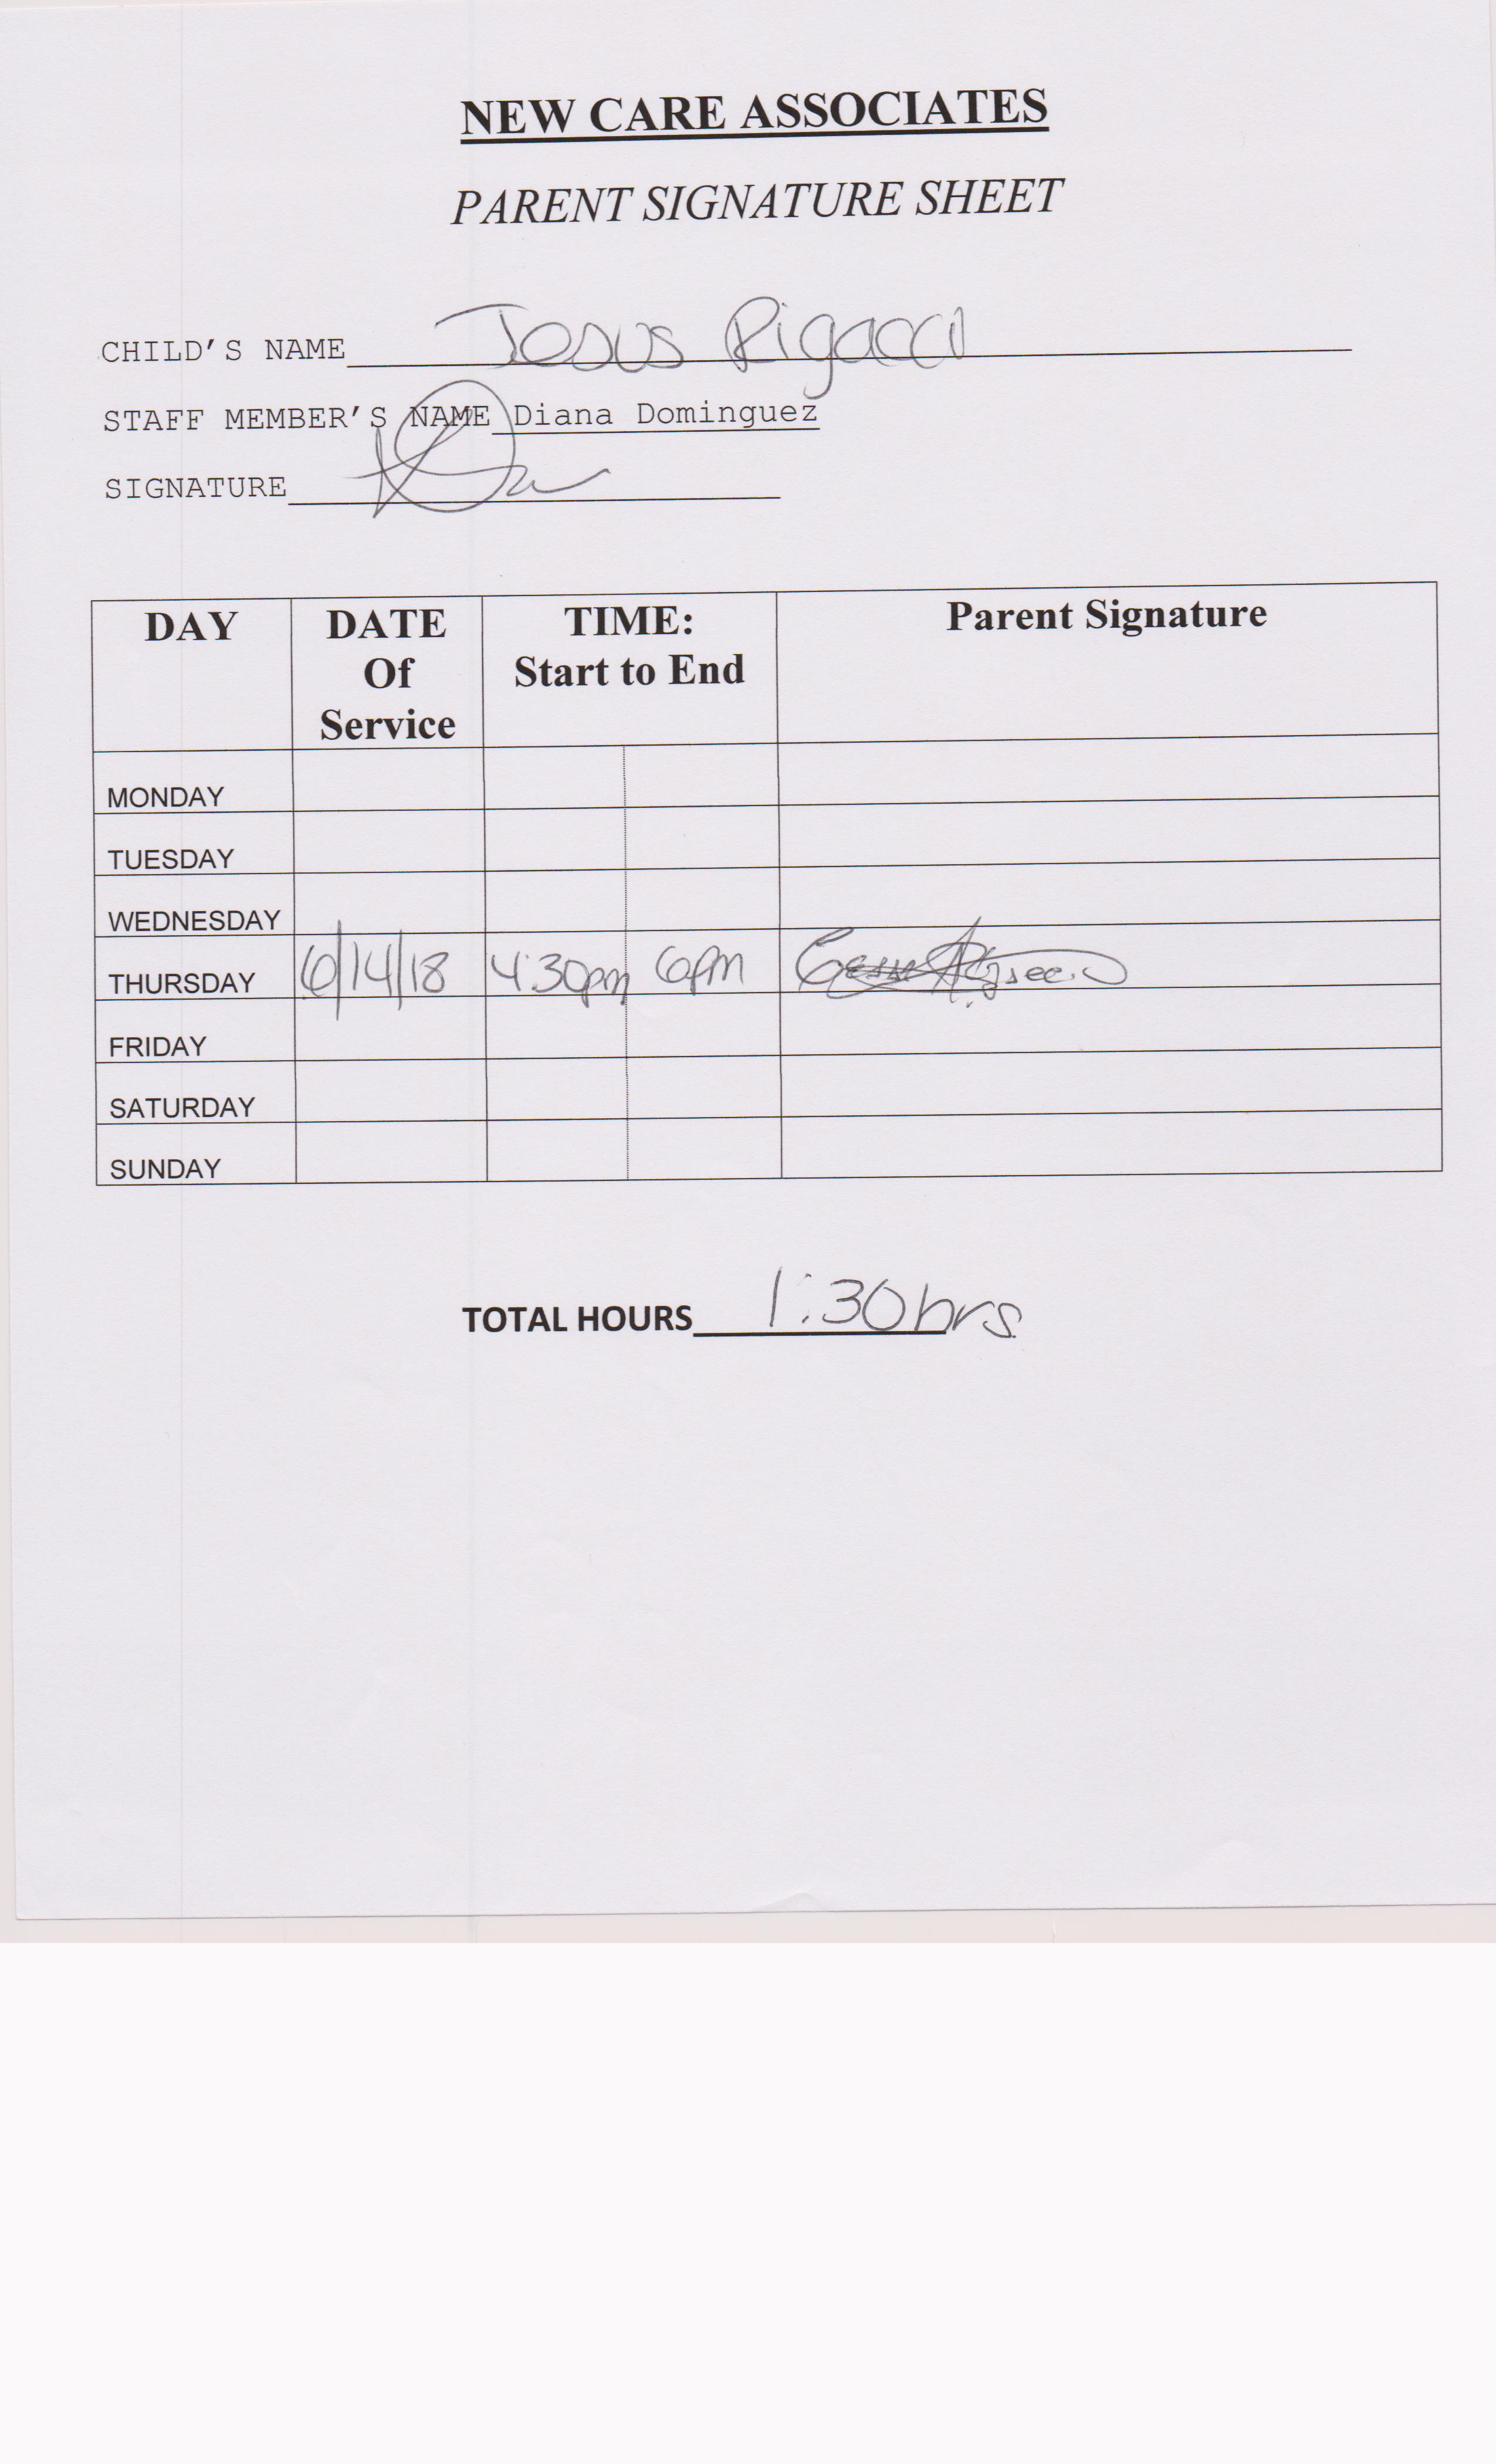 NEW CARE ASSOCIATES
PARENT SIGNATURE SHEET
CHILD'S NAME Jesus Rigacci
STAFF MEMBER'S NAME Diana Dominguez
SIGNATURE
DAY DATE Of Service TIME: Start to End Parent Signature
MONDAY
TUESDAY
WEDNESDAY
THURSDAY 6/14/18 4:30pm 6pm
FRIDAY
SATURDAY
SUNDAY
TOTAL HOURS 1:30hrs